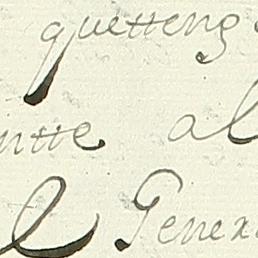 quetteng
ntte al
l Genex